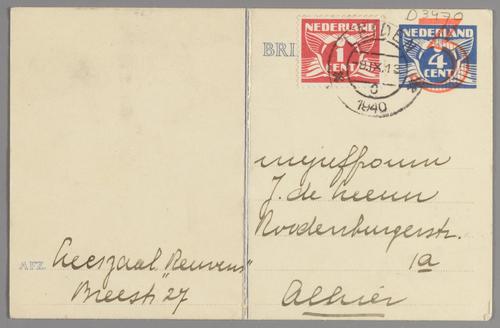 D 3470
BRI
NEDERLAND
1
CENT
NEDERLAND
4
CENT
1940
mejuffrouw
J. de Leeuw
Roodenburgerstr.
1a
Alhier
AFZ.
Leeszaal „Reuvens"
Breestr 27